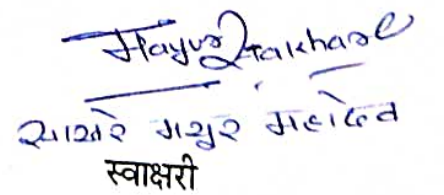 Mayur Sakhare
साखरे मयुर महादेव
स्वाक्षरी